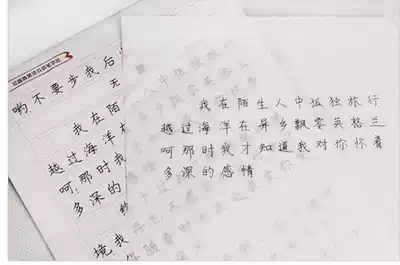 哟不要步我后
无
我在陌
越过海洋
呵!那时我
多深的
境我
我在陌生人中孤独旅行
越过海洋在异乡飘零英格兰
呵那时我才知道我对你怀着
多深的感情